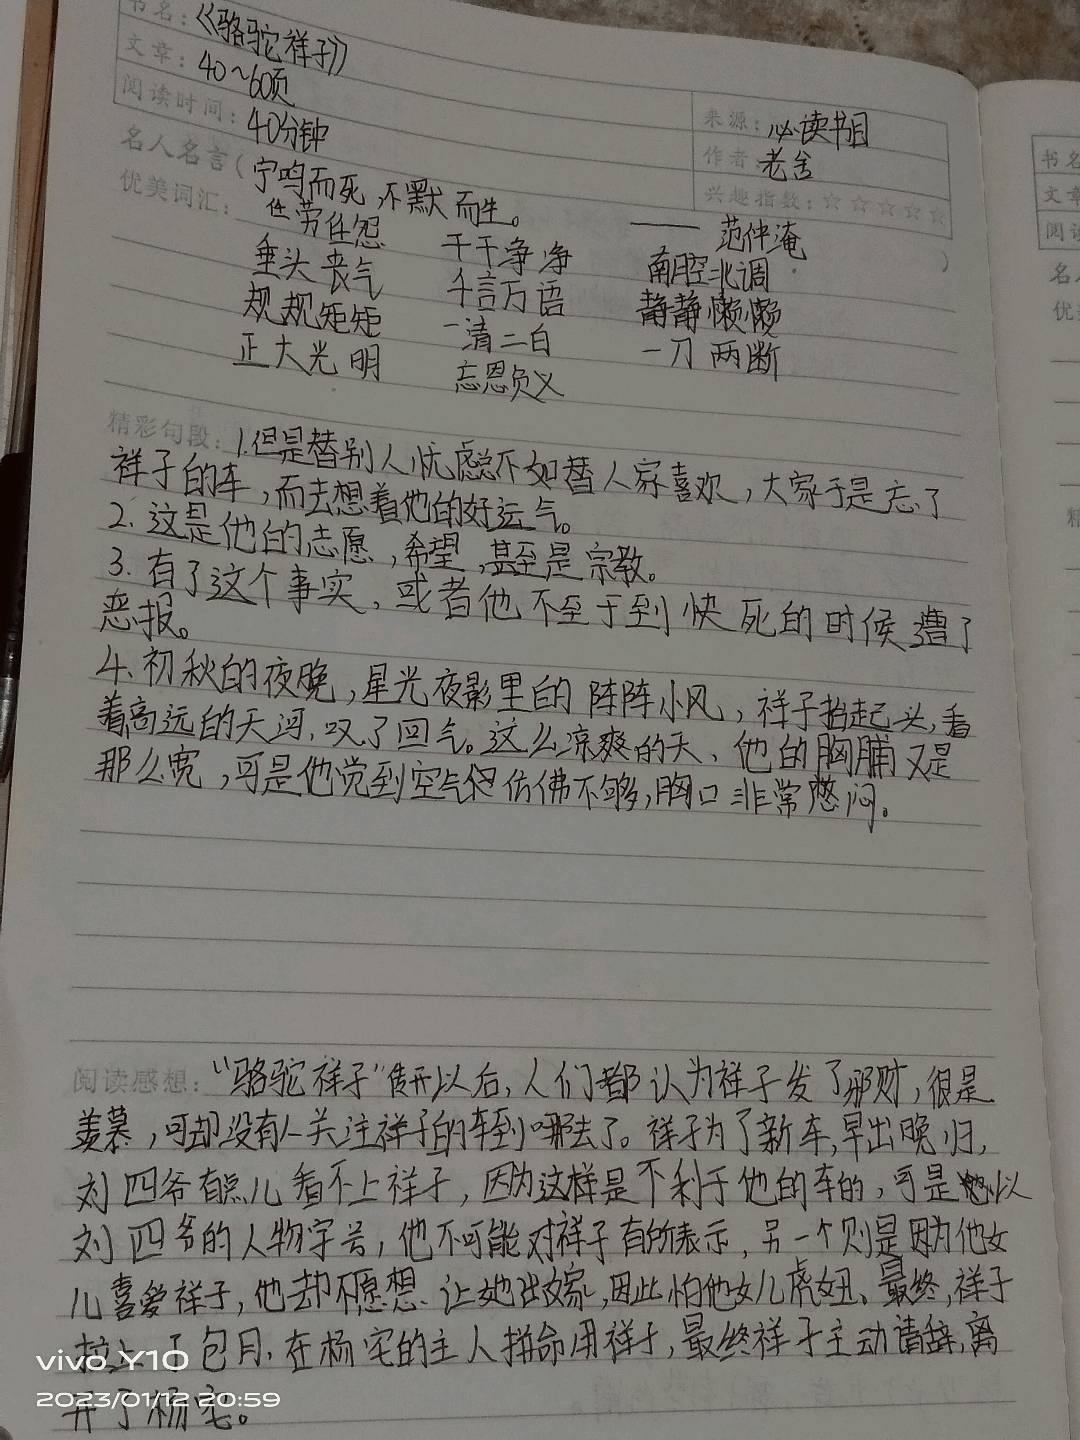 书名：《骆驼祥子》
文章：40～60页
阅读时间：40分钟
来源：必读书目
作者：老舍
兴趣指数：☆☆☆☆☆
名人名言（宁鸣而死，不默而生。
——范仲淹）
优美词汇：任劳任怨 干干净净 南腔北调
垂头丧气 千言万语 静静懒懒
规规矩矩 一清二白 一刀两断
正大光明 忘恩负义
精彩句段：1.但是替别人忧虑总不如替人家喜欢，大家于是忘了
祥子的车，而去想着他的好运气。
2.这是他的志愿，希望，甚至是宗教。
3.有了这个事实，或者他不至于到快死的时候遭了
恶报。
4.初秋的夜晚，星光夜影里的阵阵小风，祥子抬起头，看
着高远的天河，叹了回气。这么凉爽的天、他的胸脯又是
那么宽，可是他觉到空气仿佛不够，胸口非常憋闷。
阅读感想：“骆驼祥子”传开以后，人们都认为祥子发了邪财，很是
羡慕，可却没有人关注祥子的车到哪去了。祥子为了新车，早出晚归，
刘四爷有点儿看不上祥子，因为这样是不利于他的车的，可是以
刘四爷的人物字号，他不可能对祥子有所表示，另一个则是因为他女
儿喜爱祥子，他却不愿想让她出嫁，因此怕他女儿虎妞、最终，祥子
拉上了包月，在杨宅的主人拼命用祥子，最终祥子主动请辞，离
开了杨宅。
书名
文章
阅读
名人
优美
精
vivo Y10
2023/01/12 20:59